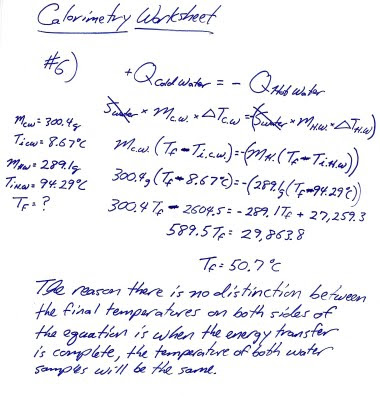 Calorimetry Worksheet
#6)
+Qcold water = - QHot water
Swater × mc.w. × ΔTc.w = -(Swater × mH.W. × ΔTH.W)
mcw = 300.4g
Ticw = 8.67°C
mHW = 289.1g
TiHW = 94.29°C
TF = ?
mc.w. (TF - Ti.c.w.) = -(mH. (TF - Ti.H.W))
300.4g (TF - 8.67°C) = -(289.1g (TF - 94.29°C))
300.4 TF - 2604.5 = - 289.1TF + 27,259.3
589.5TF = 29,863.8
TF = 50.7°C
The reason there is no distinction between
the final temperatures on both sides of
the equation is when the energy transfer
is complete, the temperature of both water
samples will be the same.